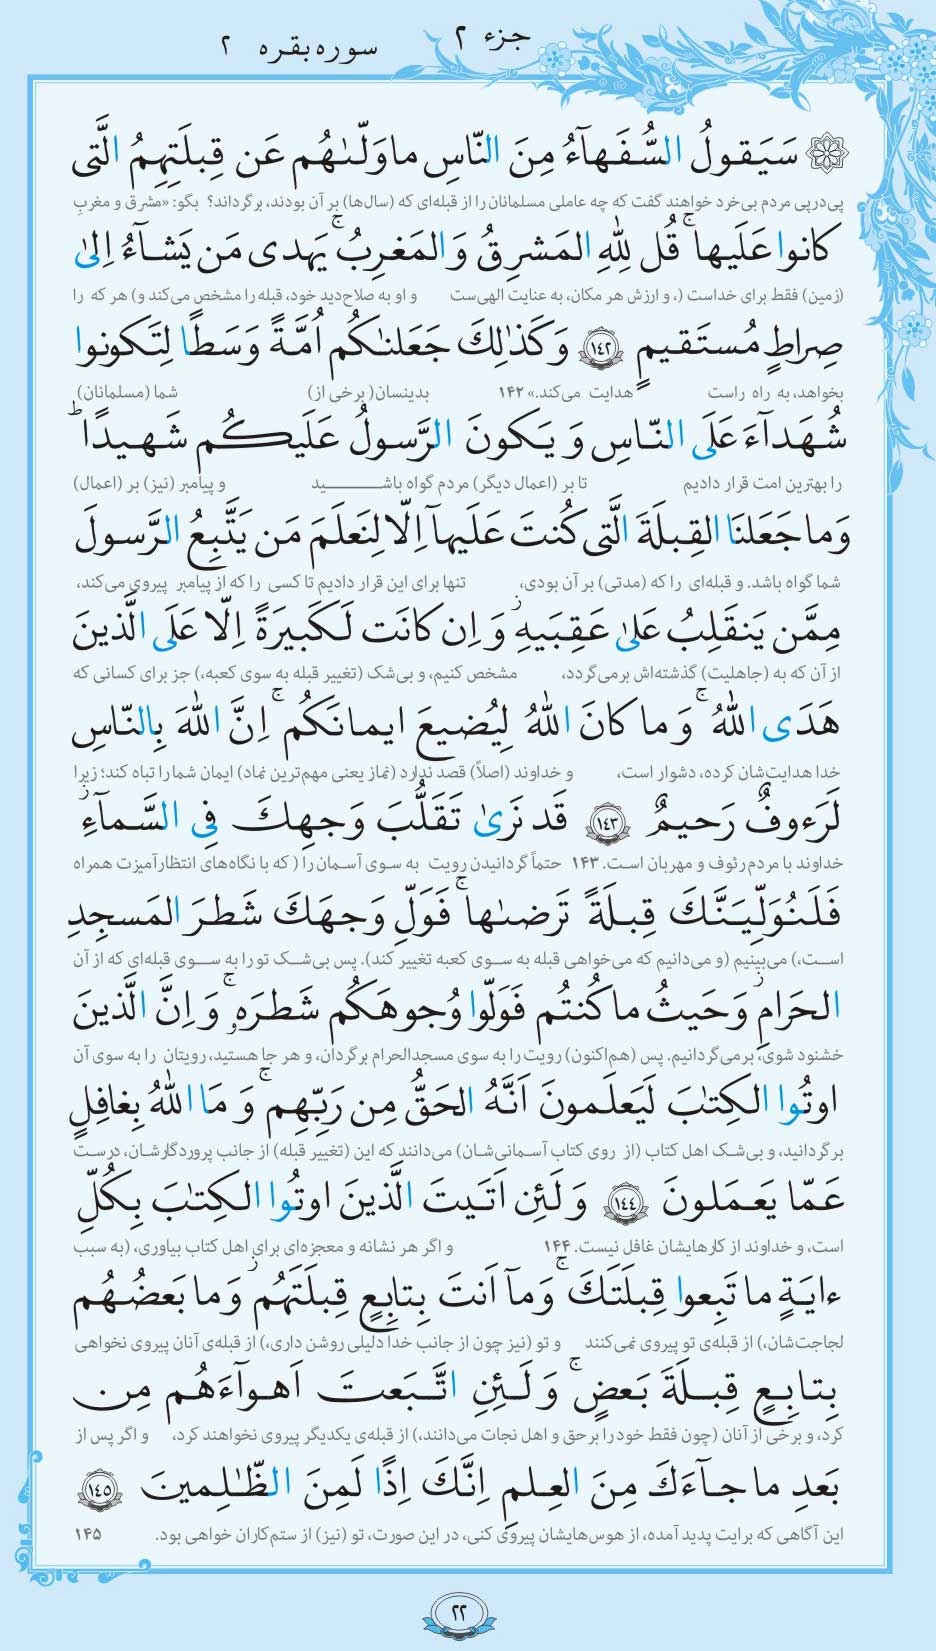 جزء ۲
سوره بقره ۲
سَيَقولُ السُّفَهآءُ مِنَ النّاسِ ماوَلّىٰهُم عَن قِبلَتِهِمُ الَّتى
پی‌درپی مردم بی‌خرد خواهند گفت که چه عاملی مسلمانان را از قبله‌ای که (سال‌ها) بر آن بودند، برگرداند؟ بگو: «مشرق و مغربِ
كانوا عَلَيهاۚ قُل لِلّٰهِ المَشرِقُ وَالمَغرِبُۚ يَهدى مَن يَشآءُ اِلىٰ
(زمین) فقط برای خداست (، و ارزش هر مکان، به عنایت الهی‌ست و او به صلاح‌دید خود، قبله را مشخص می‌کند و) هر که را
صِراطٍ مُستَقيمٍ ۱۴۲ وَكَذٰلِكَ جَعَلنٰكُم اُمَّةً وَسَطًا لِتَكونوا
بخواهد، به راه راست هدایت می‌کند.» ۱۴۲ بدینسان( برخی از) شما (مسلمانان)
شُهَدآءَ عَلَى النّاسِ وَ يَكونَ الرَّسولُ عَلَيكُم شَهيدًاؕ
را بهترین امت قرار دادیم تا بر (اعمال دیگر) مردم گواه باشـــید و پیامبر (نیز) بر (اعمال)
وَما جَعَلنَا القِبلَةَ الَّتى كُنتَ عَلَيهآ اِلّا لِنَعلَمَ مَن يَتَّبِعُ الرَّسولَ
شما گواه باشد. و قبله‌ای را که (مدتی) بر آن بودی، تنها برای این قرار دادیم تا کسی را که از پیامبر پیروی می‌کند،
مِمَّن يَنقَلِبُ عَلىٰ عَقِبَيهِ وَ اِن كانَت لَكَبيرَةً اِلّا عَلَى الَّذينَ
از آن که به (جاهلیت) گذشته‌اش برمی‌گردد، مشخص کنیم، و بی‌شک (تغییر قبله به سوی کعبه،) جز برای کسانی که
هَدَى اللّٰهُۚ وَ ما كانَ اللّٰهُ لِيُضيعَ ايمانَكُمۚ اِنَّ اللّٰهَ بِالنّاسِ
خدا هدایت‌شان کرده، دشوار است، و خداوند (اصلاً) قصد ندارد (نماز یعنی مهم‌ترین نماد) ایمان شما را تباه کند؛ زیرا
لَرَءوفٌ رَحيمٌ ۱۴۳ قَد نَرىٰ تَقَلُّبَ وَجهِكَ فِى السَّمآءِ
خداوند با مردم رئوف و مهربان است. ۱۴۳ حتماً گردانیدن رویت به سوی آسمان را ( که با نگاه‌های انتظارآمیزت همراه
فَلَنُوَلِّيَنَّكَ قِبلَةً تَرضىٰهاۚ فَوَلِّ وَجهَكَ شَطرَ المَسجِدِ
است،) می‌بینیم (و می‌دانیم که می‌خواهی قبله به سوی کعبه تغییر کند). پس بی‌شک تو را به سوی قبله‌ای که از آن
الحَرامِ وَ حَيثُ ما كُنتُم فَوَلّوا وُجوهَكُم شَطرَهۚ وَ اِنَّ الَّذينَ
خشنود شوی، برمی‌گردانیم. پس (هم‌اکنون) رویت را به سوی مسجدالحرام برگردان، و هر جا هستید، رویتان را به سوی آن
اوتُوا الكِتٰبَ لَيَعلَمونَ اَنَّهُ الحَقُّ مِن رَبِّهِمۚ وَ مَا اللّٰهُ بِغافِلٍ
برگردانید، و بی‌شک اهل کتاب (از روی کتاب آسمانی‌شان) می‌دانند که این (تغییر قبله) از جانب پروردگارشان، درست
عَمّا يَعمَلونَ ۱۴۴ وَ لَئِن اَتَيتَ الَّذينَ اوتُوا الكِتٰبَ بِكُلِّ
است، و خداوند از کارهایشان غافل نیست. ۱۴۴ و اگر هر نشانه و معجزه‌ای برای اهل کتاب بیاوری، (به سبب
ءايَةٍ ما تَبِعوا قِبلَتَكَۚ وَمآ اَنتَ بِتابِعٍ قِبلَتَهُم وَما بَعضُهُم
لجاجت‌شان،) از قبله‌ی تو پیروی نمی‌کنند و تو (نیز چون از جانب خدا دلیلی روشن داری،) از قبله‌ی آنان پیروی نخواهی
بِتابِعٍ قِبلَةَ بَعضٍۚ وَ لَئِنِ اتَّبَعتَ اَهوآءَهُم مِن
کرد، و برخی از آنان (چون فقط خود را برحق و اهل نجات می‌دانند،) از قبله‌ی یکدیگر پیروی نخواهند کرد، و اگر پس از
بَعدِ ما جآءَكَ مِنَ العِلمِ اِنَّكَ اِذًا لَمِنَ الظّٰلِمينَ ۱۴۵
این آگاهی که برایت پدید آمده، از هوس‌هایشان پیروی کنی، در این صورت، تو (نیز) از ستم‌کاران خواهی بود. ۱۴۵
۲۲